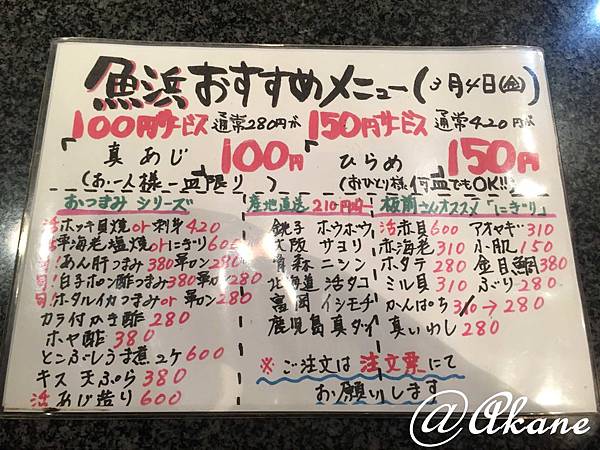 魚浜おすすめメニュー(3月4日㊎)
100円サービス 通常280円が 150円サービス 通常420円が
「真あじ 100円 「ひらめ 150円
(お一人様一皿限り) (おひとり様何皿でもOK!!)
おつまみ シリーズ
活ホッキ貝焼or刺身420
活車海老塩焼orにぎり600
旬!あん肝つまみ380軍カン280
旬!白子ポン酢つまみ380軍カン280
旬!ホタルイカつまみor軍カン280
カラ付かき酢280
ホヤ酢380
とこぶしうま煮2ケ600
キス天ぷら380
活あじ造り600
産地直送210円均一
銚子 ホウボウ
大阪 サヨリ
青森 ニシン
北海道 活タコ
富岡 イシモチ
鹿児島 真ダイ
板前さんオススメ「にぎり」
活赤貝600 アオヤギ310
赤海老310 小肌150
ホタテ280 金目鯛380
ミル貝310 ぶり280
かんぱち310→280
真いわし280
※ご注文は注文票にて
お願いします
@Akane